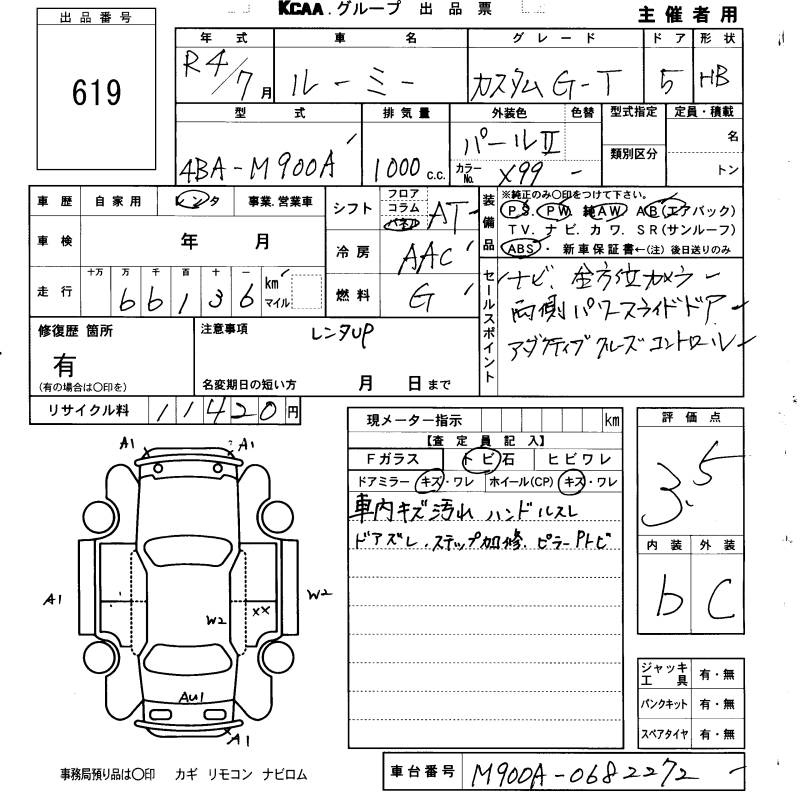 出品番号
619
KCAA.グループ 出品票
主催者用
年式 車名 グレード ドア 形状
R4/7月 ルーミー カスタムG-T 5 HB
型式 排気量 外装色 色替 型式指定 定員・積載
4BA-M900A 1000c.c. パールⅡ 類別区分 名
カラーNo. X99 - トン
車歴 自家用 レンタ 事業.営業車
車検 年 月
走行 十万 万 千 百 十 一
66136 km マイル
シフト フロア コラム パネル AT
冷房 AAC
燃料 G
装備品 ※純正のみ○印をつけて下さい。
PS. PW. 純AW AB(エアバック)
TV. ナビ. カワ. SR(サンルーフ)
ABS・ 新車保証書←(注)後日送りのみ
セールスポイント
ナビ、全方位カメラ
両側パワースライドドア
アダプティブクルーズコントロール
修復歴 箇所
有
(有の場合は○印を)
注意事項 レンタUP
名変期日の短い方 月 日まで
リサイクル料 11420円
現メーター指示 km
【査定員記入】
Fガラス トビ石 ヒビワレ
ドアミラー キズ・ワレ ホイール(CP) キズ・ワレ
車内キズ汚れ ハンドルスレ
ドアズレ.ステップ加修.ピラーPトビ
評価点
3.5
内装 外装
b C
ジャッキ工具 有・無
パンクキット 有・無
スペアタイヤ 有・無
A1 A1
A1 W2
W2 XX
AU1
A1
事務局預り品は○印 カギ リモコン ナビロム
車台番号 M900A-0682272